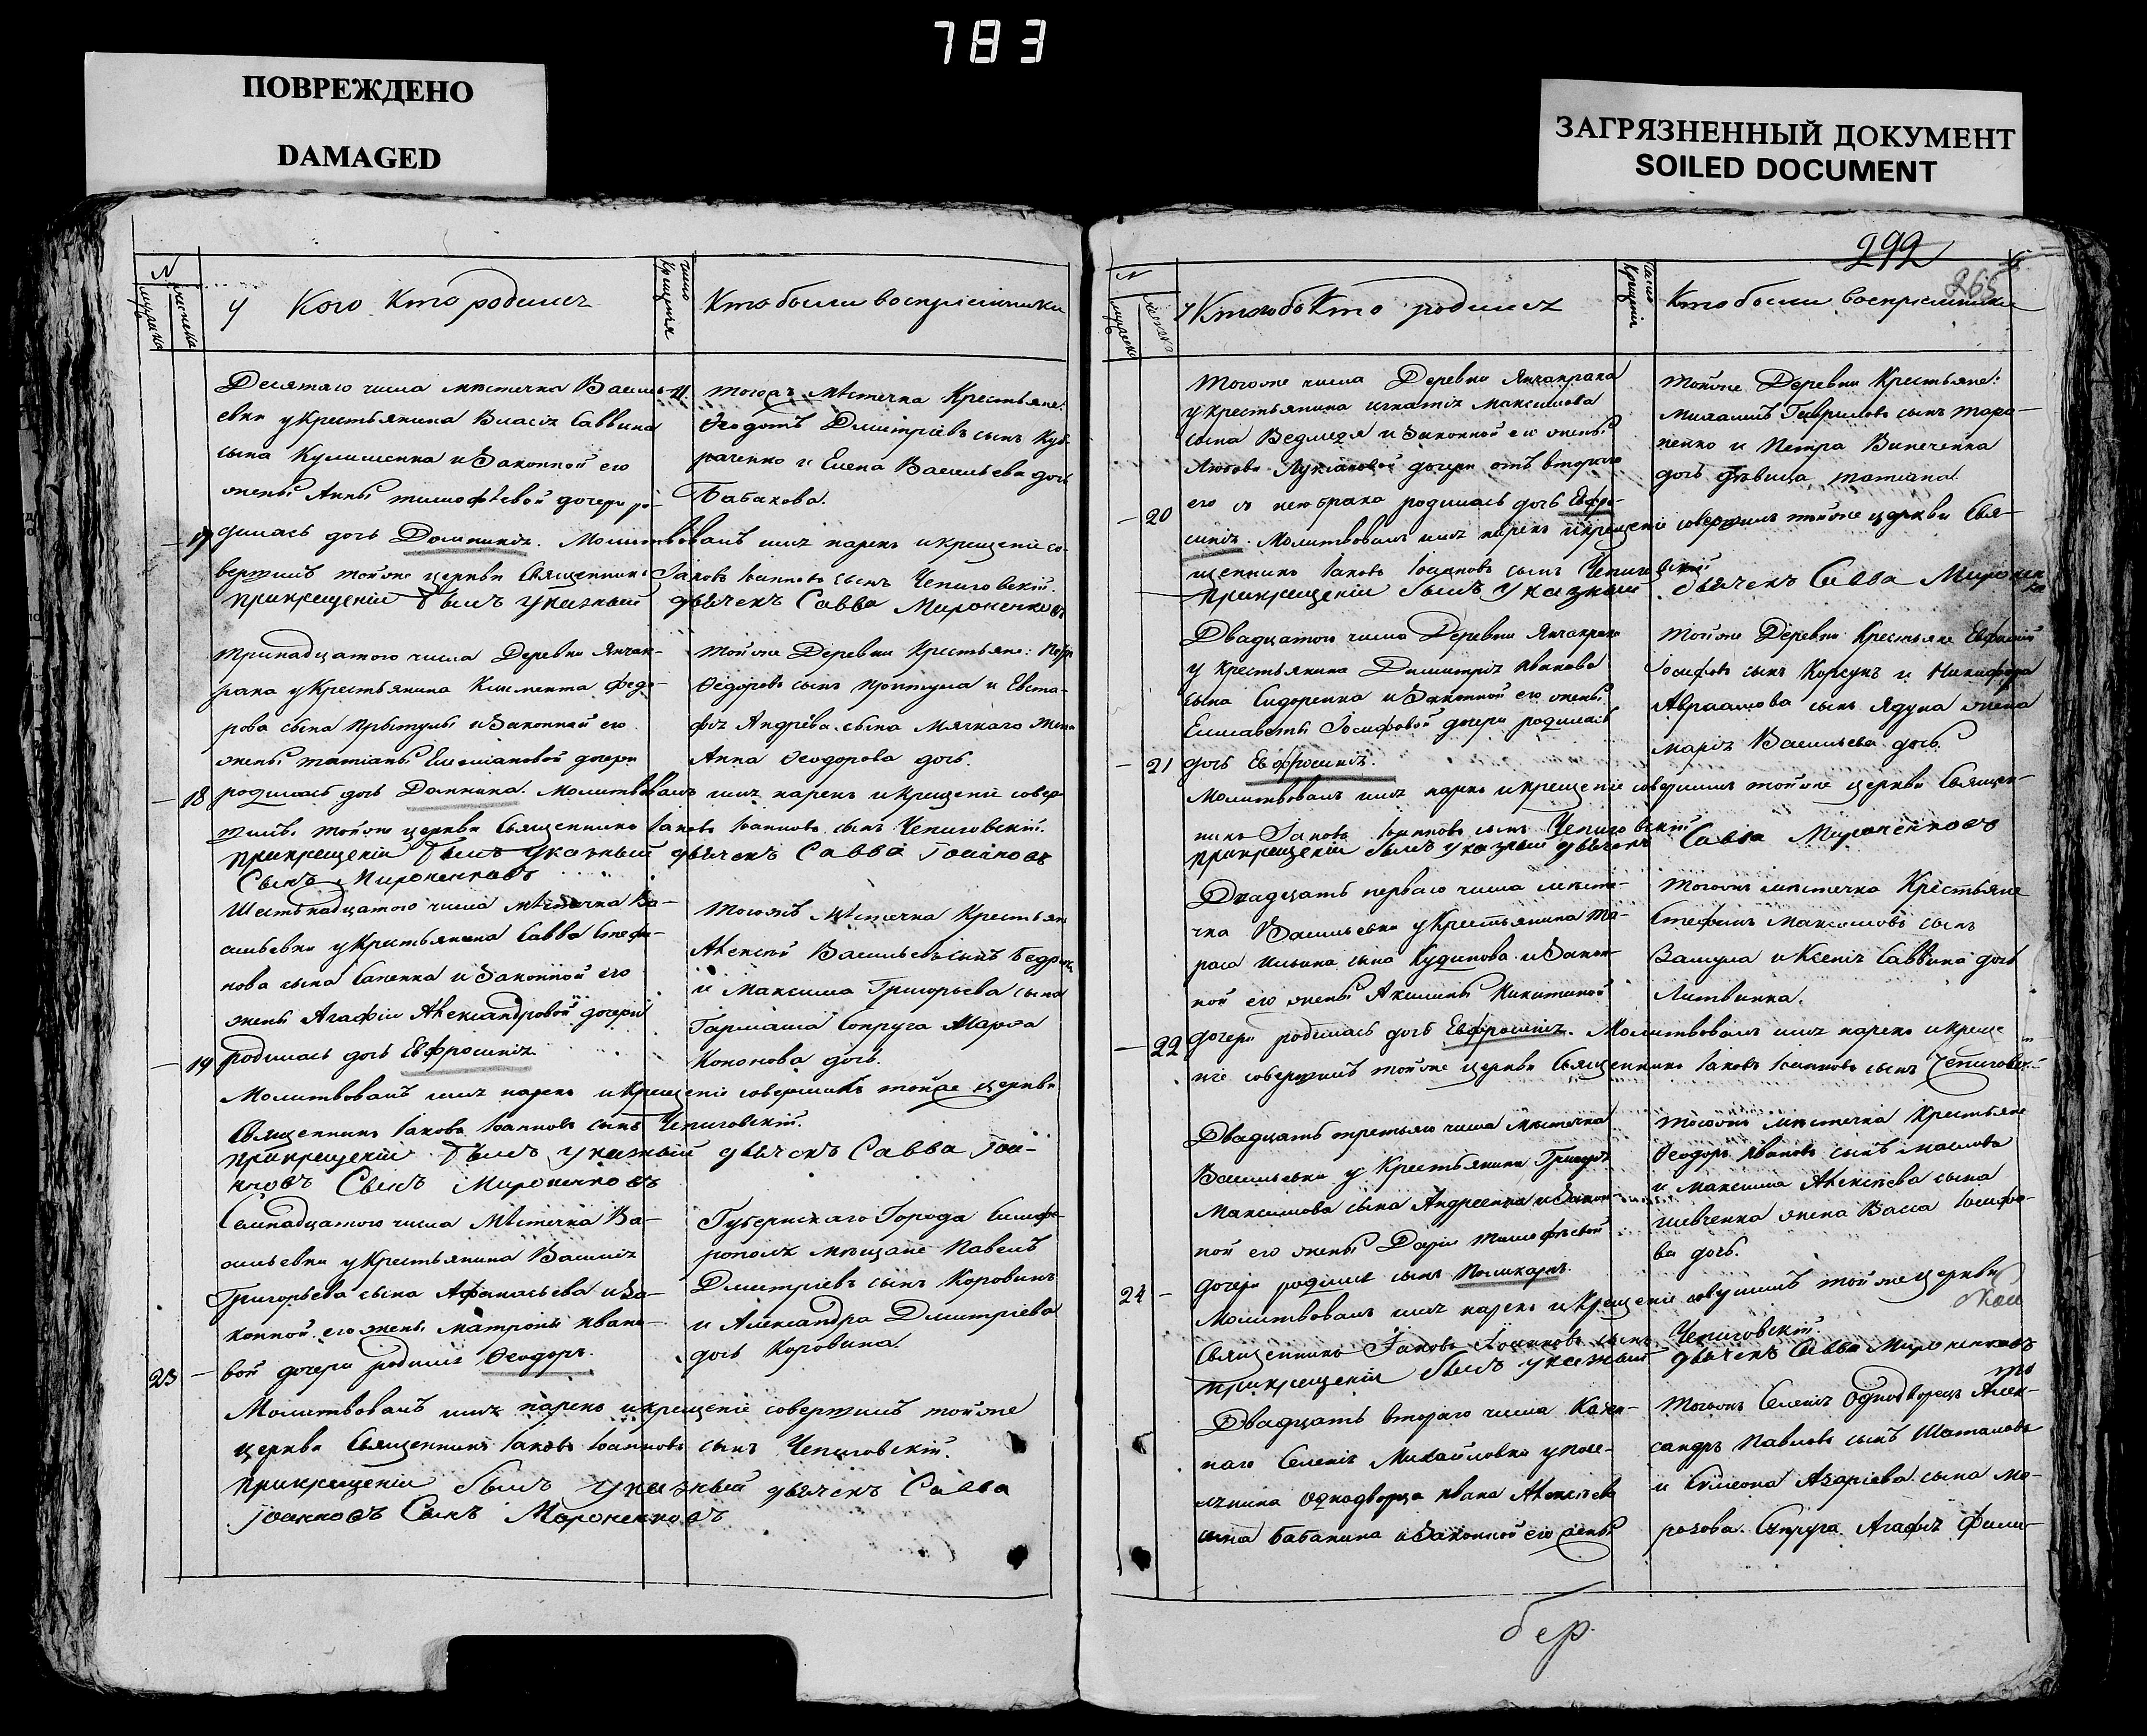 783
ПОВРЕЖДЕНО
DAMAGED
ЗАГРЯЗНЕННЫЙ ДОКУМЕНТ
SOILED DOCUMENT
N
мужеска
женска
У Кого Кто родился
число Крещения
Кто были восприемники
Десятаго числа местечка Василь-
евки у Крестьянина Власия Саввина
сына Кулишенка и Законной его
жены Анны тимофеевой дочери ро-
17 дилась дочь Домникия. Молитвовалъ имя нареклъ и крещение со-
вершилъ тойже церкви Священникъ Iаковъ Iоанновъ сынъ Чепиговскiй.
при крещенiи былъ указный дьячекъ Савва Мироненковъ
11.
тогожъ Местечка Крестьяне:
Феодотъ Димитрiевъ сынъ
и Елена Васильева дочь
Бабакова.
Тринадцатого числа Деревни Янчак-
рака у Крестьянина Климента Федо-
рова сына Притулы и Законной его
жены татiаны Емелiановой дочери
18 родилась дочь Домника. Молитвовалъ имя нареклъ и Крещенiе совер-
шилъ тойже церкви Священникъ Iаковъ Iоанновъ сынъ Чепиговскiй.
при крещенiи былъ указный дьячекъ Савва Iоановъ
Сынъ Мироненковъ
тойже Деревни Крестьяне: Петръ
Феодоровъ сынъ Притула и Евста-
фiя Андреева сына Мягкаго жена
Анна Феодорова дочь.
Шестьнадцатого числа местечка Ва-
сильевки у Крестьянина Савва Стефа-
нова сына Сапенка и Законной его
жены Агафiи Александровой дочери
19 родилась дочь Евфросинiя
Молитвовалъ имя нареклъ и Крещенiе совершилъ тойже церкви
Священникъ Iаковъ Iоанновъ сынъ Чепиговскiй.
при крещенiи былъ указный дьячекъ Савва Iоа-
нновъ Сынъ Мироненковъ
тогожъ Местечка Крестьяне
Алексей Васильевъ сынъ
и Максима Григорьева сына
Гармаша Супруга Марфа
Кононова дочь.
Семнадцатого числа Местечка Ва-
сильевки у Крестьянина Василия
Григорьева сына Афанасьева и За-
конной его жены матроны Ивано-
23 вой дочери родился Феодоръ.
Молитвовалъ имя нареклъ и крещенiе совершилъ тойже
церкви Священникъ Iаковъ Iоанновъ сынъ Чепиговскiй.
при крещенiи былъ указный дьячекъ Савва
Iоанновъ Сынъ Мироненковъ
Губернскаго Города Симфе-
рополя мещане Павелъ
Дмитрiевъ сынъ Коровинъ
и Александра Дмитрiева
дочь Коровина.
292
265
N
мужеска
женска
Кто родился
число Крещенiя
Кто были восприемники
Тогоже числа Деревни Янчакрака
у крестьянина игнатiя Максимова
сына Ведмедя и Законной его жены
Любови Лукiановой дочери отъ второго
20 его с нею брака родилась дочь Евфро-
синiя. Молитвовалъ имя нареклъ и крещенiе совершилъ тойже церкви Свя-
щенникъ Iаковъ Iоанновъ сынъ Чепиговскiй
при крещенiи былъ указный дьячекъ Савва Мироненко
тойже Деревни Крестьяне:
Михаилъ Гавриловъ сынъ тара-
ненко и Петра Виниченка
дочь девица татiана.
Двадцатого числа Деревни Янчакрака
у Крестьянина Димитрiя Иванова
сына Сидоренка и Законной его жены
Елисаветы Iосифовой дочери родилась
21 дочь Евфросинiя.
Молитвовалъ имя нареклъ и крещенiе совершилъ тойже церкви Священ-
никъ Iаковъ Iоанновъ сынъ Чепиговскiй
при крещенiи былъ указный дьячекъ Савва Мироненковъ
тойже Деревни Крестьяне
Iосифовъ сынъ Корсунъ и Никифора
Авраамова сына Ядука жена
марiя Васильева дочь.
Двадцать перваго числа месте-
чка Васильевки у Крестьянина та-
раса Ильина сына Кудинова и Закон-
ной его жены Акилины Никитиной
22 дочери родилась дочь Евфросинiя. Молитвовалъ имя нареклъ и креще
нiе совершилъ тойже церкви Священникъ Iаковъ Iоанновъ сынъ Чепиговскiй
тогожъ местечка Крестьяне
Стефанъ Максимовъ сынъ
и Ксенiя Саввина дочь
Литвинка.
Двадцать третьяго числа местечка
Васильевки у Крестьянина Григорiя
Максимова сына Андреенка и Закон-
ной его жены Дарiи тимофеевой
24 дочери родился сынъ Поликарпъ.
Молитвовалъ имя нареклъ и Крещенiе совершилъ тойже церкви
Священникъ Iаковъ Iоанновъ сынъ Чепиговскiй.
при крещенiи былъ указный дьячекъ Савва Мироненковъ
тогожъ местечка Крестьяне
Феодоръ Ивановъ сынъ маслова
и максима Алексеева сына
Шевченка жена Васса Iосифо-
ва дочь.
Двадцать втораго числа Казен-
наго Селенiя Михайловки у посе-
лянина Однодворца Ивана Алексеева
сына Бабанина и Законной его жены
тогожъ Селенiя Однодворецъ Алек-
сандръ Павловъ сынъ Шаталовъ
и Симеона Азарiева сына мо-
розова Супруга Агафiя Фили-
бер